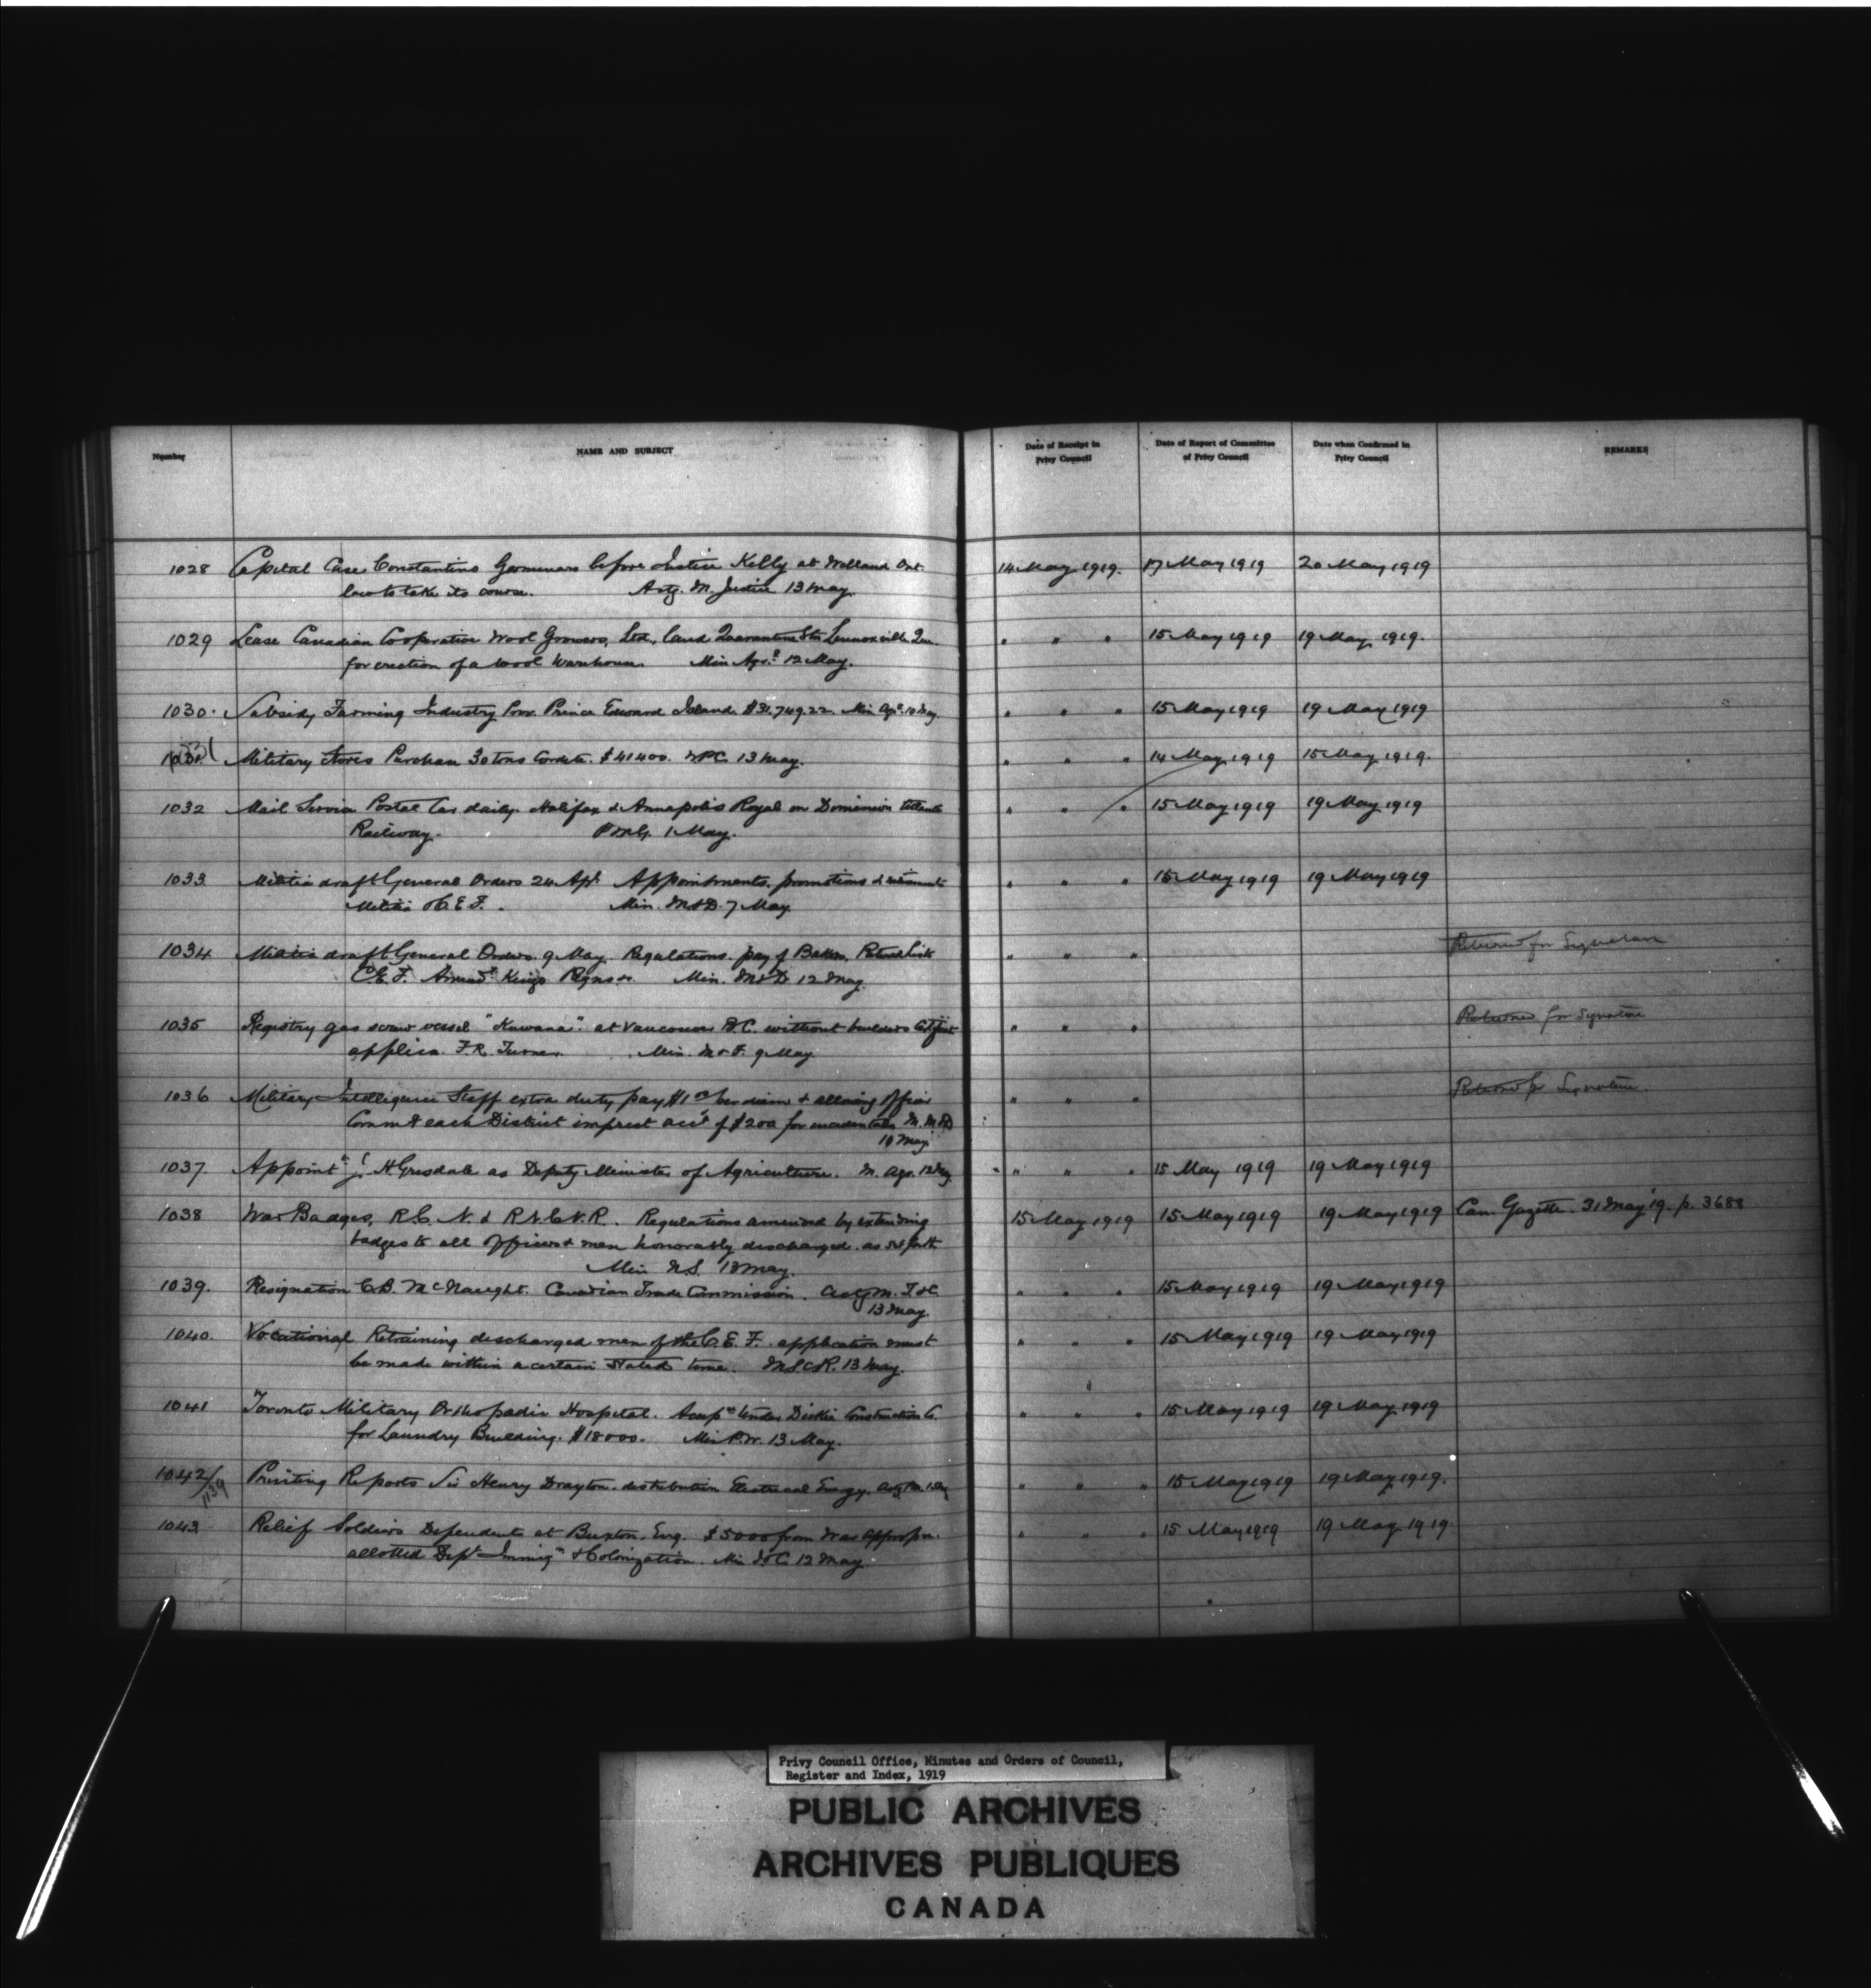 Number
NAME AND SUBJECT
Date of Receipt in
Privy Council
Date of Report of Committee
of Privy Council
Date when Confirmed in
Privy Council
REMARKS
1028 Capital Case Constantino before Justice Kelly at Welland Ont 14 May 1919. 17 May 1919 20 May 1919
law to take its course. Actg. M. Justice 13 May.
1029 Lease Canadian Cooperative Wool Growers, Ltd., land Quarantine Stn Lennoxville Que. " " " 15 May 1919 19 May 1919.
for erection of a wool warehouse. Min Agr. 12 May.
1030. Subsidy Farming Industry Prov. Prince Edward Island. $31,749.22. Min Agr. 10 May. " " " 15 May 1919 19 May 1919
1031 Military Stores Purchase 30 tons Cordite. $41400. WPC. 13 May. " " " 14 May 1919 15 May 1919.
1032 Mail Service Postal Car daily Halifax & Annapolis Royal on Dominion Atlantic " " " 15 May 1919 19 May 1919
Railway. PMG. 1 May.
1033 Militia draft General Orders 24 Apl. Appointments, promotions & retirements " " " 15 May 1919 19 May 1919
Militia & C.E.F. Min. M&D. 7 May
1034 Militia draft General Orders. 9 May. Regulations. pay of Bakers. Retired List " " " Returned for Signature
C.E.F. Amend. Kings Regns &c. Min. M&D. 12 May.
1035 Registry gas screw vessel "Kuwana" at Vancouver B.C. without builders Certificate " " " Returned for Signature
applicn. F.R. Turner. Min. M&F. 9 May.
1036 Military Intelligence Staff extra duty pay $1.00 per diem & allowing Officer " " " Returned for Signature.
Commdg each District imprest acct of $200 for incidentals M. M&D
10 May
1037. Appoint J. H Grisdale as Deputy Minister of Agriculture. M. Agr. 12 May. " " " 15 May 1919 19 May 1919
1038 War Badges, R.C.N. & R.N.C.V.R. Regulations amended by extending 15 May 1919 15 May 1919 19 May 1919 Can. Gazette. 31 May '19. p. 3688
badges to all Officers & men honorably discharged. as set forth
Min N.S. 13 May.
1039. Resignation C.B. McNaught. Canadian Trade Commission. Actg M. T&C. " " " 15 May 1919 19 May 1919
13 May.
1040. Vocational Retraining discharged men of the C.E.F. application must " " " 15 May 1919 19 May 1919
be made within a certain stated time. MSCR. 13 May.
1041 Toronto Military Orthopadic Hospital. Accepce tender Dickie Construction Co. " " " 15 May 1919 19 May 1919
for Laundry Building. $18000. Min P.W. 13 May.
1042/1139 Printing Reports Sir Henry Drayton. distribution Electrical Energy. " " " 15 May 1919 19 May 1919.
1043 Relief Soldiers Dependents at Buxton, Eng. $5000 from War Appropn. " " " 15 May 1919 19 May 1919.
allotted Dept Immign & Colonization. Min I&C. 12 May.
Privy Council Office, Minutes and Orders of Council,
Register and Index, 1919
PUBLIC ARCHIVES
ARCHIVES PUBLIQUES
CANADA